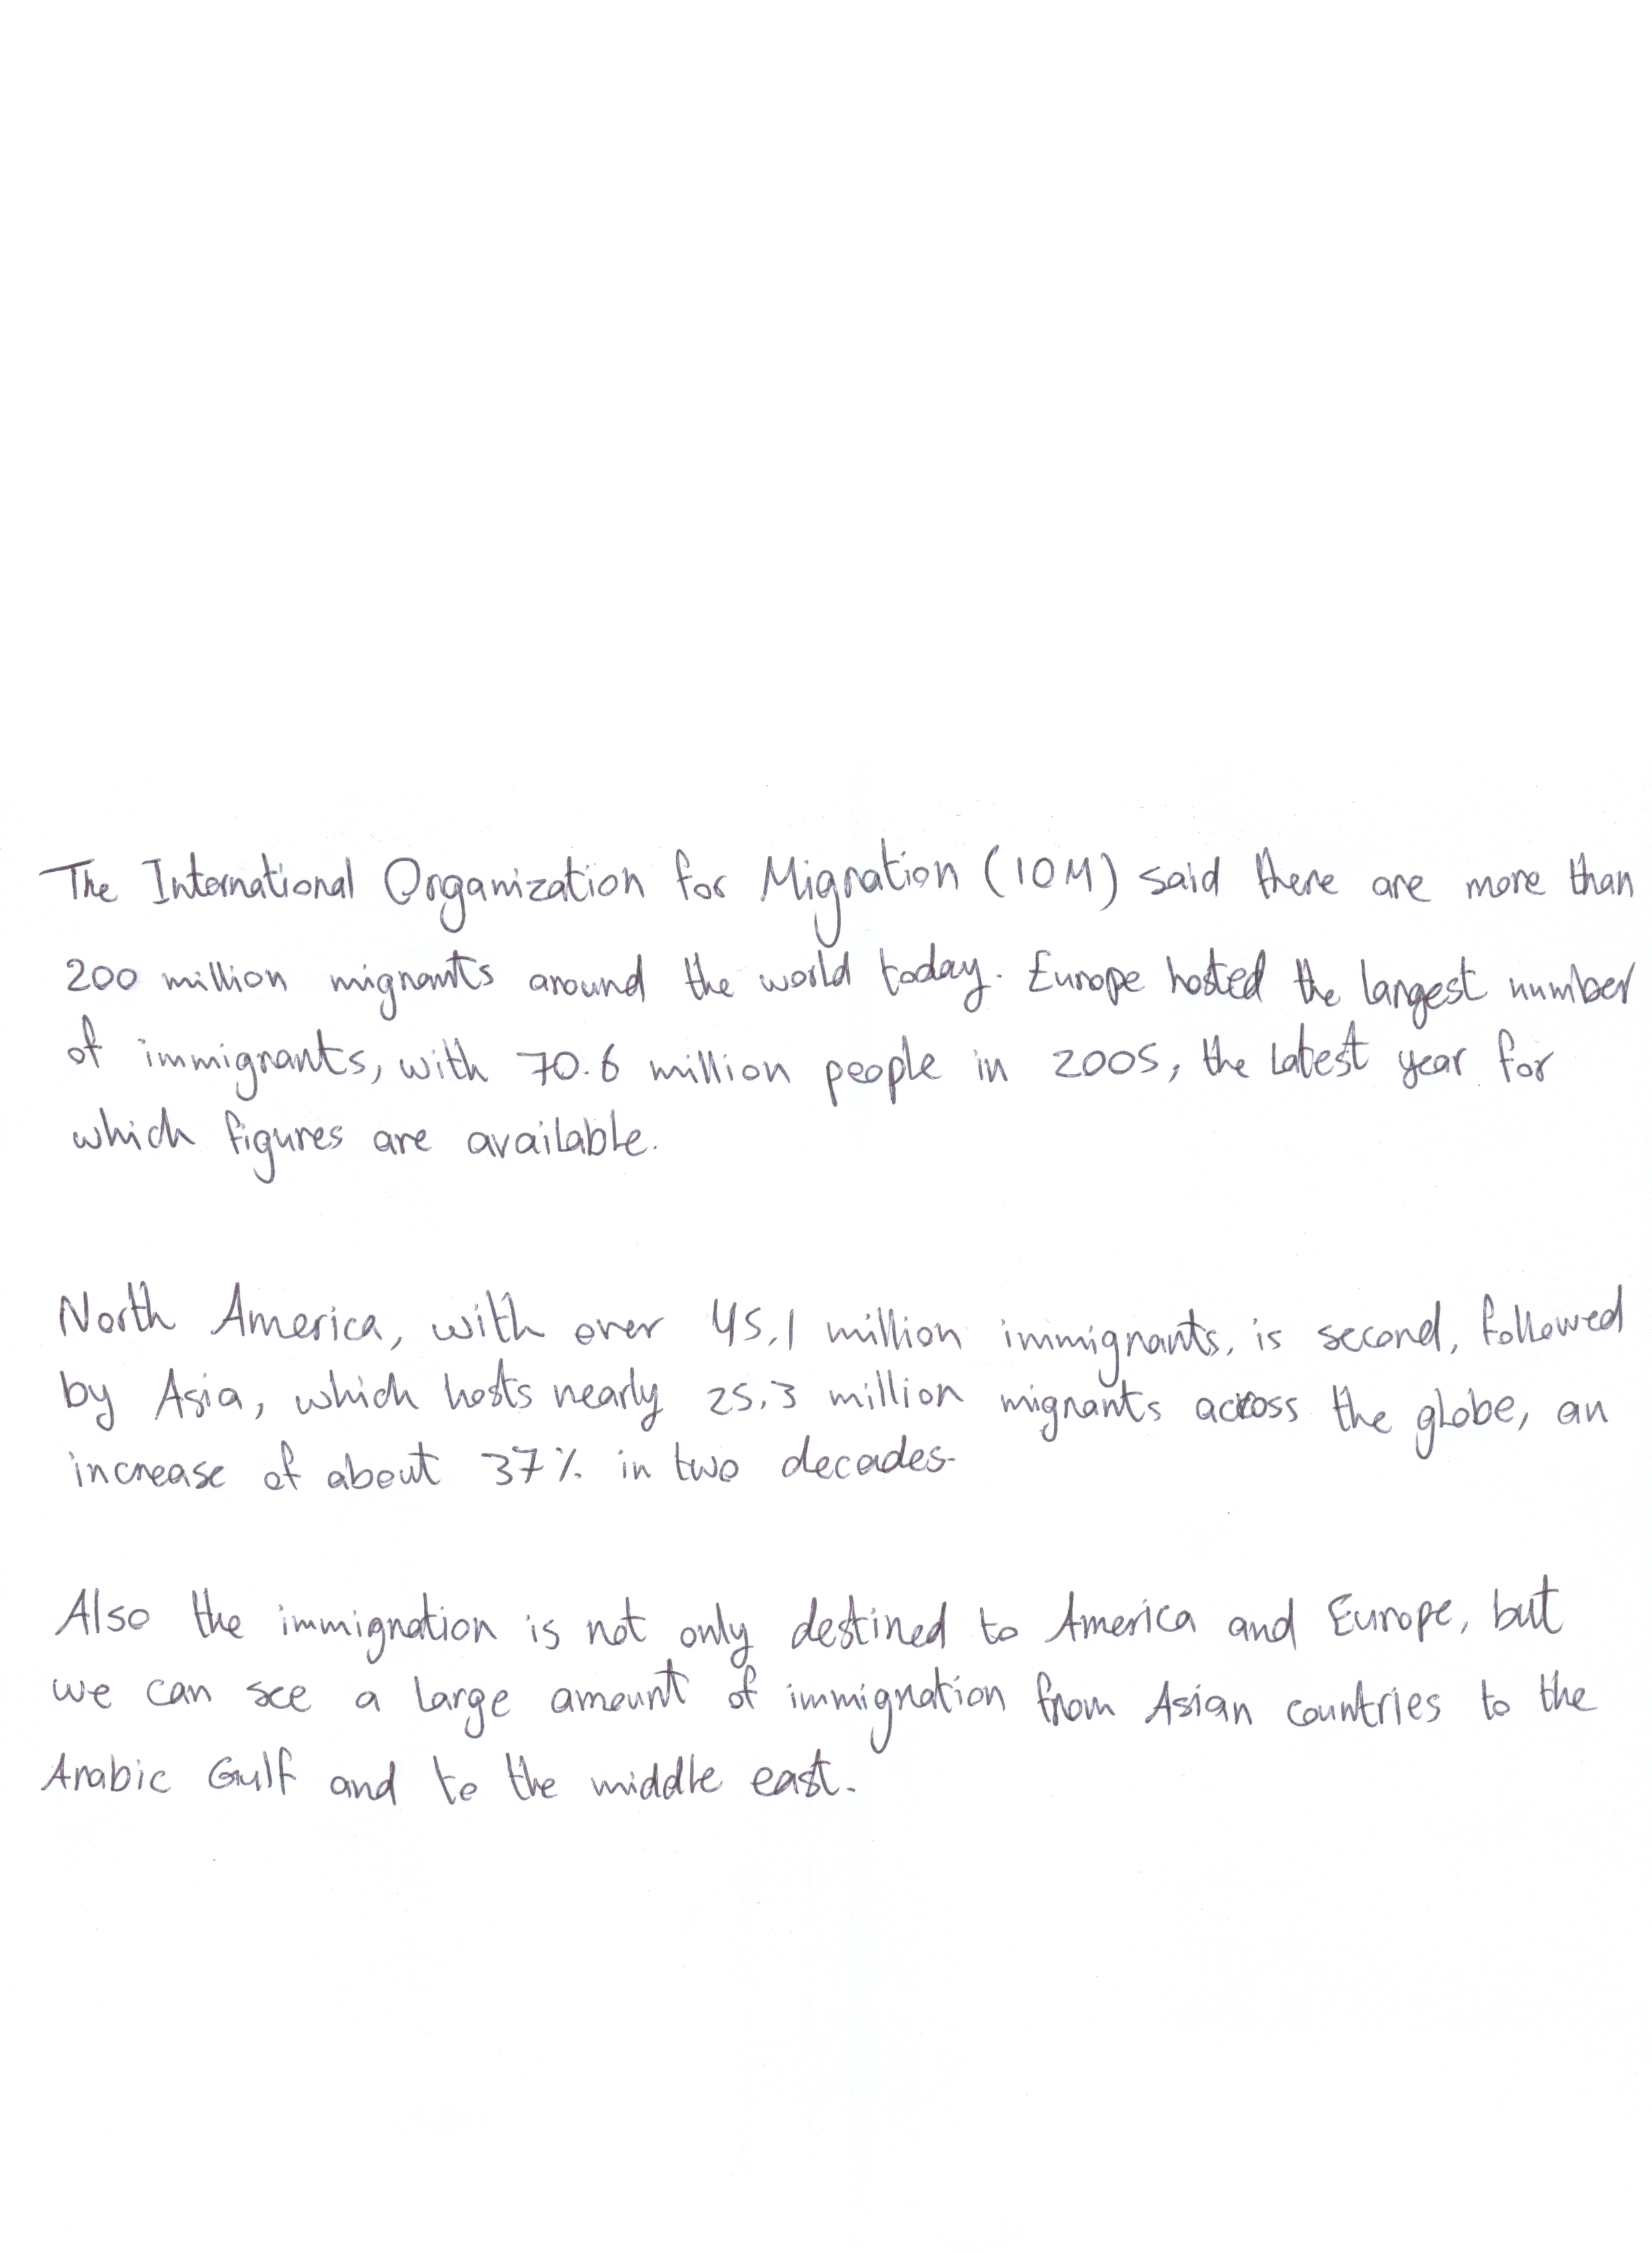 The International Organization for Migration (IOM) said there are more than
200 million migrants around the world today. Europe hosted the largest number
of immigrants, with 70.6 million people in 2005, the latest year for
which figures are available.
North America, with over 45.1 million immigrants, is second, followed
by Asia, which hosts nearly 25.3 million migrants across the globe, an
increase of about 37% in two decades.
Also the immigration is not only destined to America and Europe, but
we can see a large amount of immigration from Asian countries to the
Arabic Gulf and to the middle east.